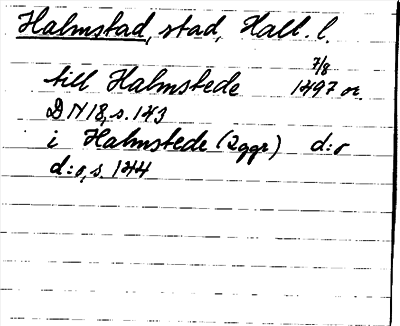 Halmstad, stad, Hall. l.
till Halmstede 7/8 1497 or.
DN 18, s. 143
i Halmstede (2ggr) d:o
d:o, s. 144